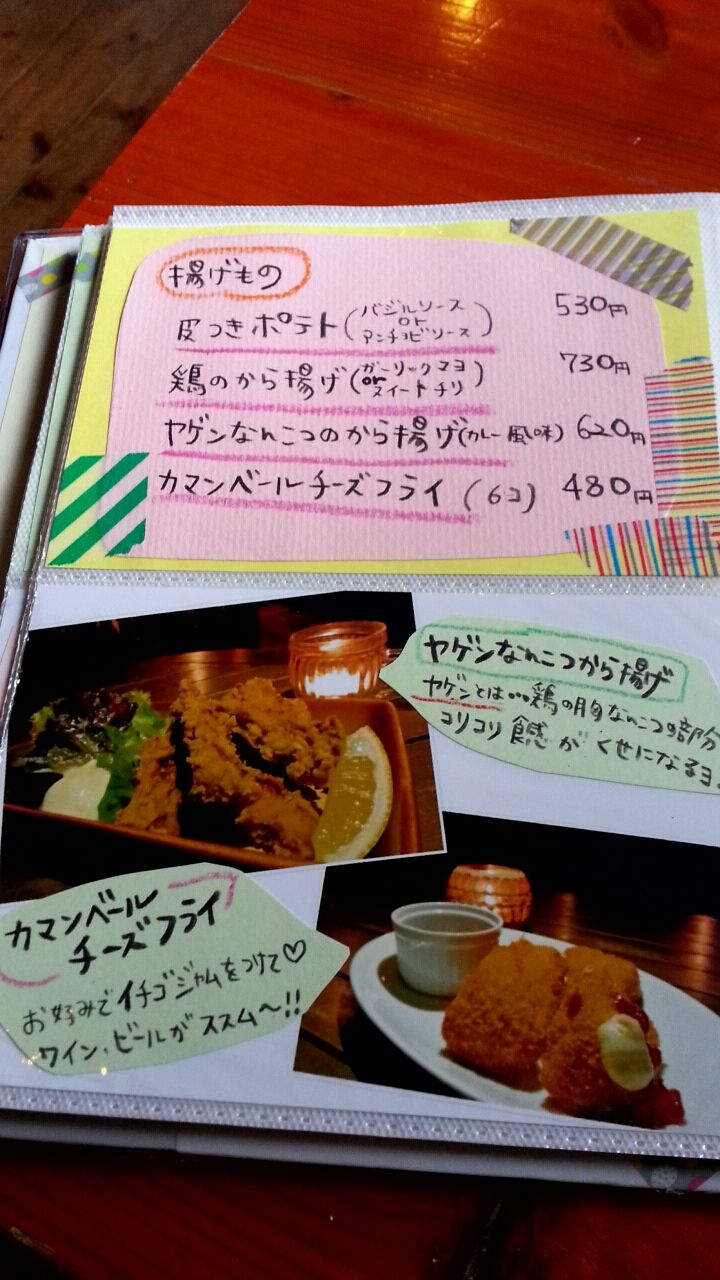 揚げもの
皮つきポテト(バジルソース or アンチョビソース) 530円
鶏のから揚げ(ガーリックマヨ or スイートチリ) 730円
ヤゲンなんこつのから揚げ(カレー風味) 620円
カマンベールチーズフライ(6コ) 480円
ヤゲンなんこつから揚げ
ヤゲンとは…鶏の胸なんこつの部分
コリコリ食感がくせになるヨ。
カマンベール
チーズフライ
お好みでイチゴジャムをつけて♡
ワイン、ビールがススム〜!!